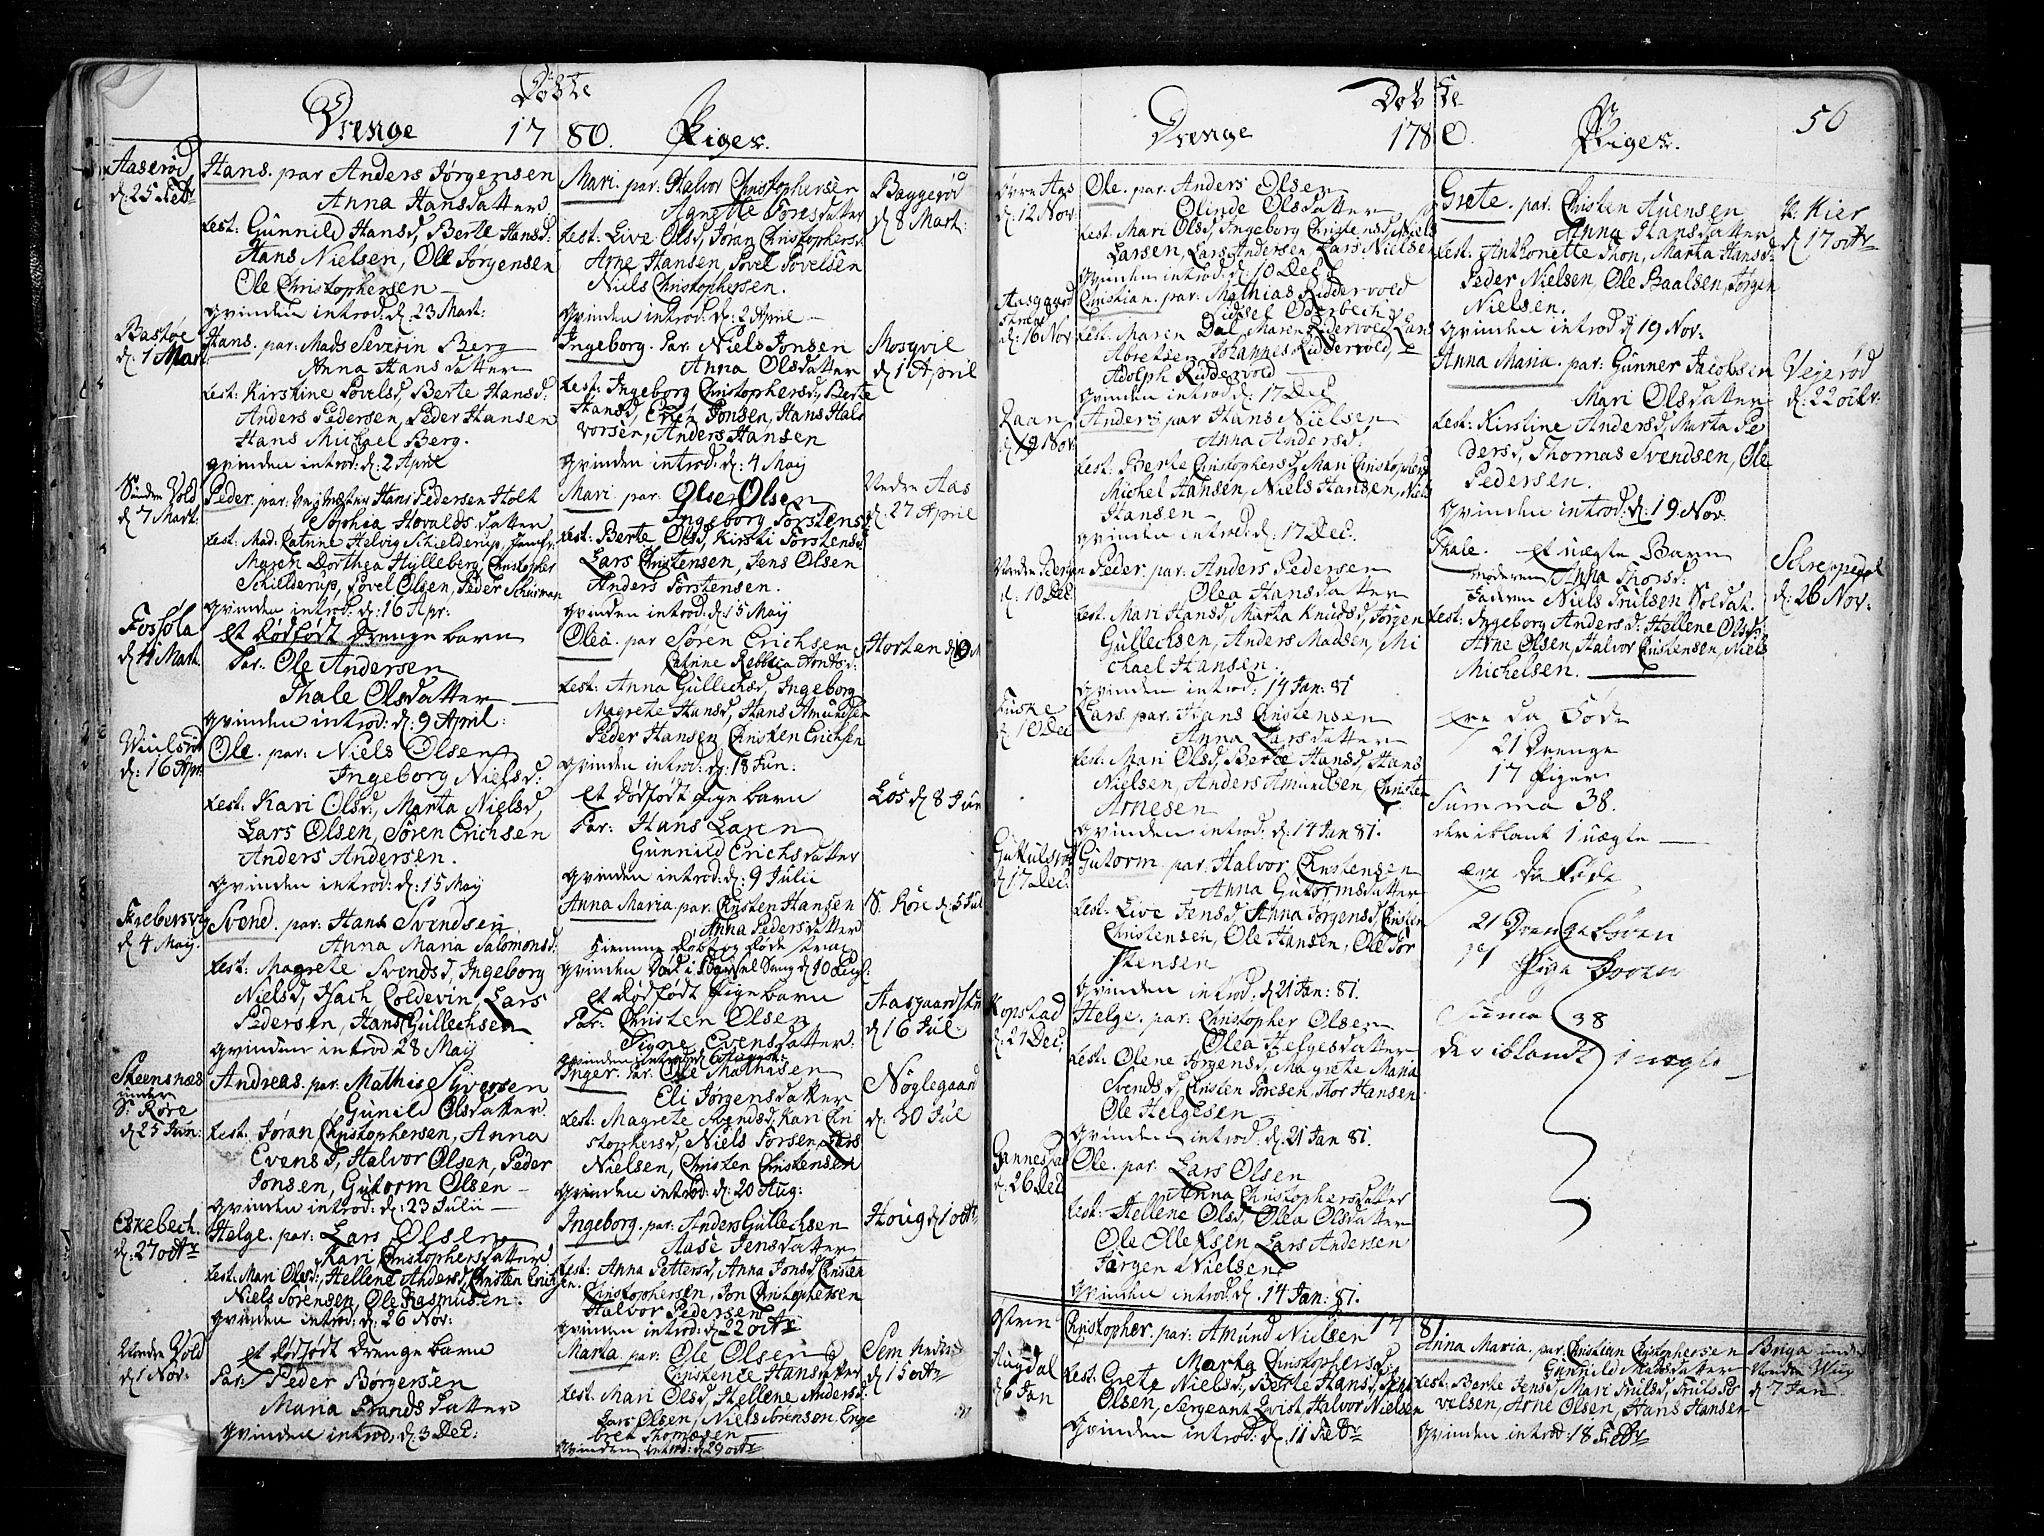 Döbte
Drenge 1780. Piger.
Aaserød
d: 25 Febr
Hans. par Anders Jørgensen
Anna Hansdatter
test: Gunnild Hansd, Berte Hansd:
Hans Nielsen, Ole Jørgensen
Ole Christophersen
qvinden introd: d: 23 Mart:
Bastøe
d: 1 Mart
Hans. par: Mads Severin Berg
Anna Hansdatter
test: Kirstine Povelsd, Berte Hansd:
Anders Pedersen, Peder Hansen
Hans Michael Berg.
qvinden introd: d: 2 April
Søndre Vold
d 7 Mart:
Peder. par: Hans Pedersen Holt
Sophia Hovalds datter
test: Mad: Catrine Helvig Schielderup, Jomfr:
Maren Dorthea Hylleberg, Christopher
Schielderup, Povel Olsen, Peder
qvinden introd: d: 16 Apr:
Fossøla
d 4 Mart
et dødfødt Drenge barn
Par. Ole Andersen
Thale Olsdatter
qvinden introd: d: 9 April:
d: 16 Apr:
Ole. par: Niels Olsen
Ingeborg Nielsd:
test: Kari Olsd, Marta Nielsd,
Lars Olsen, Søren Erichsen
Anders Andersen.
qvinden introd: d: 15 Maij
d 4 Maij.
Svend. par: Hans Svendsen
Anna Maria Salomonsd:
test: Magrete Svendsd, Ingeborg
Nielsd, Isach Coldevin, Lars
Pedersen, Hans Gullechsen
qvinden introd 28 Maij
Steensnæs
under
S. Røre
d 25 Jun:
Andreas. par: Mathis Syversen
Gunild Olsdatter
test: Jøran Christophersen, Anna
Evensd, Halvor Olsen, Peder
Jonsen, Gutorm Olsen
qvinden introd: d: 23 Julii
Eskebech
d: 27 octr
Helge. par: Lars Olsen
Kari Christophersdatter
test: Mari Olsd:, Hellene Andersd, Christen Erich
sen
Niels Sørensen, Ole Rasmusen.
qvinden introd: d: 26 Nov:
Nedre Vold
d 1 Nov:
et dødfødt Drenge barn
Par: Peder Børgersen
Maria Frandsdatter
qvinden introd: d: 3 Dec:
Mari. par: Halvor Christophersen
Agnette Toresdatter
test: Live Olsd, Jøran Christophersd:
Arne Hansen, Povel Povelsen
Niels Christophersen.
qvinden introd: d: 2 April
Baggerød
d 8 Mart:
Ingeborg. Par. Niels Jonsen
Anna Olsdatter
test: Ingeborg Christophersd, Berte
Hansd, Erich Jonsen, Hans Hal
vorsen, Anders Hansen
qvinden introd: d: 4 Maij
Mosqvil
d 1 April
Mari. par: Olse Olsen
Ingeborg Torstensd
test: Berte Olsd, Kirsti Torstensd
Lars Christensen, Jens Olsen
Anders Torstensen.
qvinden introd: d: 15 Maij
Nedre Aas
d: 27 April
Olea. par Søren Erichsen
Catrine Rebbeca
test: Anna Gullechsd, Ingeborg
Magrete Hansd, Hans Amundsen
Peder Hansen Christen Erichsen
qvinden introd: d: 18 Jun:
Horten
et dødfødt Pige barn
Par: Hans Laren
Gunnild Erichsdatter
qvinden introd: d: 9 Julii
Løs d 8 Jun
Anna Maria par. Christen Hansen
Anna Pedersdatter
hiemme døbt og døde strax
S. Røre d: 5 Jul
et dødfødt Pige barn
Par: Christen Olsen
Signe Evensdatter
Aasgaard
d 16 Jul:
Inger. Par. Ole Mathisen
Eli Jørgensdatter
test: Magrete Svendsd, Kari Chri
stophersd, Niels Torsen, Lars
Nielsen, Christen Christensen
qvinden introd: d: 20 Aug:
Nøglegaard
d: 30 Jul
Ingeborg. par: Anders Gullechsen
Aase Jensdatter
test: Anna Pettersd, Anna Jonsd, Christen
Christophersen, Jon Christophersen
Halvor Pedersen
qvinden introd: d 22 octr
Houg d 1 octr
Marta. par: Ole Olsen
Christence Hansdatter
test. Mari Olsd, Hellene Andersd.
Lars Olsen, Niels Sørensen Enge
bret Thomæsen
qvinden introd: d 29 octr
Sem nedre
d 15 octr
Döbte
Drenge 1780. Piger. 56
Øvre Aas
d: 12 Nov
Ole. par: Anders Olsen
Olinde Olsdatter
test Mari Olsd, Ingeborg Christensd, Niels
Larsen, Lars Andersen Lars Nielsen
qvinden introd: d: 10 Dec
Aasgaard
d: 16 Nov
Christian. par: Mathias Riddervold
test: Maren Dal, Maren Ridervold Lars
Johannes Riddervold,
Adolph Riddervold
qvinden introd: d: 17 Dec
Raan
d: 19 Nov
Anders. par Hans Nielsen
Anna Andersd:
test: Berte Christophersd, Mari Christophersd
Michel Hansen, Niels Hansen, Niels
Hansen
qvinden introd: d: 17 Dec.
d: 10 Dec
Peder. par: Anders Pedersen
Olea Hansdatter
test: Mari Hansd, Marta Knudsd, Jørgen
Gullechsen, Anders Madsen, Mi
chael Hansen.
qvinden introd: 14 Jan: 81
Fuske
d: 10 Dec
Lars. par: Hans Christensen
Anna Larsdatter
test: Mari Olsd, Berte Hansd, Hans
Nielsen, Anders Amundsen, Christen
Arnesen
qvinden introd. d: 14 Jan 81.
d 17 Dec:
Gutorm. par: Halvor Christensen
Anna Gutormsdatter
test: Live Jensd, Anna Jørgensd, Christen
Christensen, Ole Hansen, Ole Tor
stensen
qvinden introd: d 21 Jan: 81.
Kopstad
d: 21 Dec.
Helge. par: Christopher Olsen
Olea Helgesdatter
test: Olene Jørgensd, Magrete Maria
Svendsd, Christen Toresen, Thor Hansen
Ole Helgesen
qvinden introd: d. 21 Jan 81.
Gannestad
d: 26 Dec
Ole. par: Lars Olsen
Anna Christophersdatter
test: Hellene Olsd, Olea Olsdatter
Ole Ollefsen Lars Andersen
Jørgen Nielsen
qvinden introd: d. 14 Jan: 81.
Grete. par: Christen Auensen
Anna Hansdatter
test: Anthonette Thon, Marta Hansd:
Peder Nielsen, Ole Paalsen, Jørgen
Nielsen.
qvinden introd d 19 Nov.
N: Kier
d 17 octr
Anna Maria. par: Gunner Jacobsen
Mari Olsdatter
test: Kirstine Andersd, Marta Pe
dersd, Thomas Svendsen, Ole
Pedersen.
qvinden introd: d: 19 Nov.
Vejerød
d: 22 octr.
Thale. et uægte Barn
moderen Anna Thorsd:
Faderen Niels Trulsen Soldat.
test: Ingeborg Andersd: Hellene Olsd:
Arne Olsen, Halvor Christensen, Niels
Michelsen.
Schreppedal
d: 26 Nov:
ere da Föde
21 Drenge
17 Piger
Summa 38.
deriblant 1 uægte
ere da Föde
21 Drenge börn
17 Pige börn
Suma 38
deriblandt 1 uegte
1781
Augdal
d 6 Jan
Christopher. par: Amund Nielsen
Marta Christophersd:
test: Grete Nielsd, Berte Hansd,
Olsen, Sergeant Qvist, Halvor Nielsen
qvinden introd: d: 11 Febr
Anna Maria. par. Christian Christophersen
Gunnild Madsdatter
test: Berte Jensd, Mari Trulsd, Truls Po
velsen, Arne Olsen, Hans Hansen
qvinden introd: 18 Febr
under
d 7 Jan